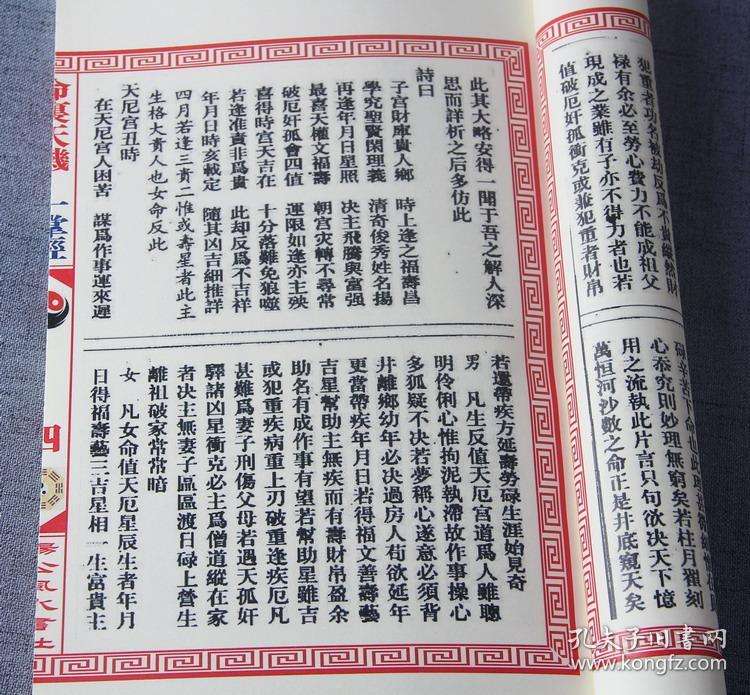 犯重者功名被劫反爲不貴雖然財
祿有余必至勞心費力不能成祖父
現成之業雖有子亦不得力者也若
值破厄奸孤衝克或兼犯重者財帛
碌辛苦下命也此
心泰究則妙理無窮矣若柱月翟刻
用之流執此片言只句欲决天下憶
萬恒河沙數之命正是井底窺天矣
此其大略安得一聞于吾之解人深
思而詳析之后多仿此
詩曰
子宮財庫貴人鄉 時上逢之福壽昌
學究聖賢閑理義 清奇俊秀姓名揚
再逢年月日星照 决主飛騰與富强
最喜天權文福壽 朝宮灾轉不尋常
破厄奸孤會四值 運限如逢亦主殃
喜得時宮天吉在 十分落難免狼噬
若逢准責非爲貴 此却反爲不吉祥
年月日時亥載定 隨其凶吉細推詳
四月若逢三責二惟或壽星者此主
生格大貴人也女命反此
天厄宮丑時
在天厄宮人困苦 謀爲作事運來遲
若還帶疾方延壽勞碌生涯始見奇
男 凡生反值天厄宮道爲人雖聰
明伶俐心惟拘泥執滯故作事操心
多狐疑不决若夢稱心遂意必須背
井離鄉幼年必决過房人苟欲延年
更當帶疾年月日若得福文善壽藝
吉星幫助主無疾而有壽財帛盈余
助名有成作事有望若幫助星雖吉
或犯重疾病重上刃破重逢疾厄凡
甚難爲妻子刑傷父母若遇天孤奸
驛諸凶星衝克必主爲僧道縱在家
者决主無妻子區區渡日碌上營生
離祖破家常常暗
女 凡女命值天厄星辰生者年月
日得福壽藝三吉星相一生富貴主
命裏天機 一掌經
四
孔夫子旧书网
www.kongfz.com